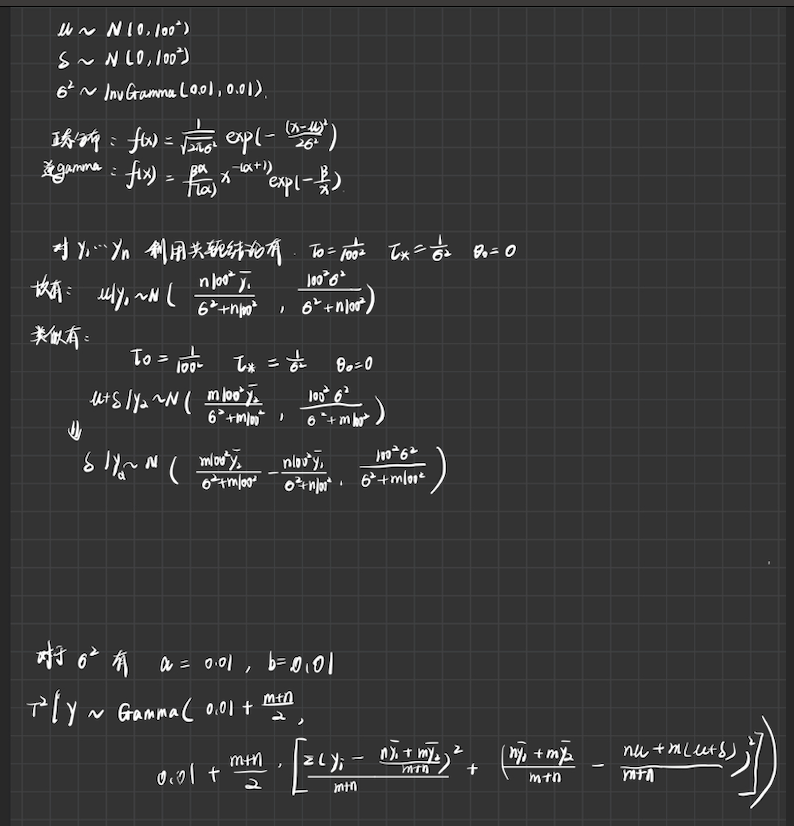 μ ~ N(0,100²)
δ ~ N(0,100²)
σ² ~ InvGamma(0.01, 0.01).
正态分布: f(x) = 1/√(2πσ²) exp(-(x-μ)²/2σ²)
逆gamma: f(x) = β^α/Γ(α) x^-(α+1) exp(-β/x)
对 y₁…yₙ 利用共轭结论有. τ₀=1/100² τ*=1/σ² θ₀=0
故有: μ|y₁ ~ N( n100²ȳ₁/(σ²+n100²) , 100²σ²/(σ²+n100²) )
类似有:
τ₀ = 1/100² τ* = 1/σ² θ₀=0
μ+δ|y₂ ~ N( m100²ȳ₂/(σ²+m100²) , 100²σ²/(σ²+m100²) )
⇓
δ|y₂ ~ N ( m100²ȳ₂/(σ²+m100²) - n100²ȳ₁/(σ²+n100²) , 100²σ²/(σ²+m100²) )
对于 σ² 有 a = 0.01 , b=0.01
τ²|y ~ Gamma( 0.01 + (m+n)/2 ,
0.01 + (m+n)/2 · [ Σ(yᵢ - (nȳ₁+mȳ₂)/(m+n))²/(m+n) + ( (nȳ₁+mȳ₂)/(m+n) - (nμ+m(μ+δ))/(m+n) )² ] )